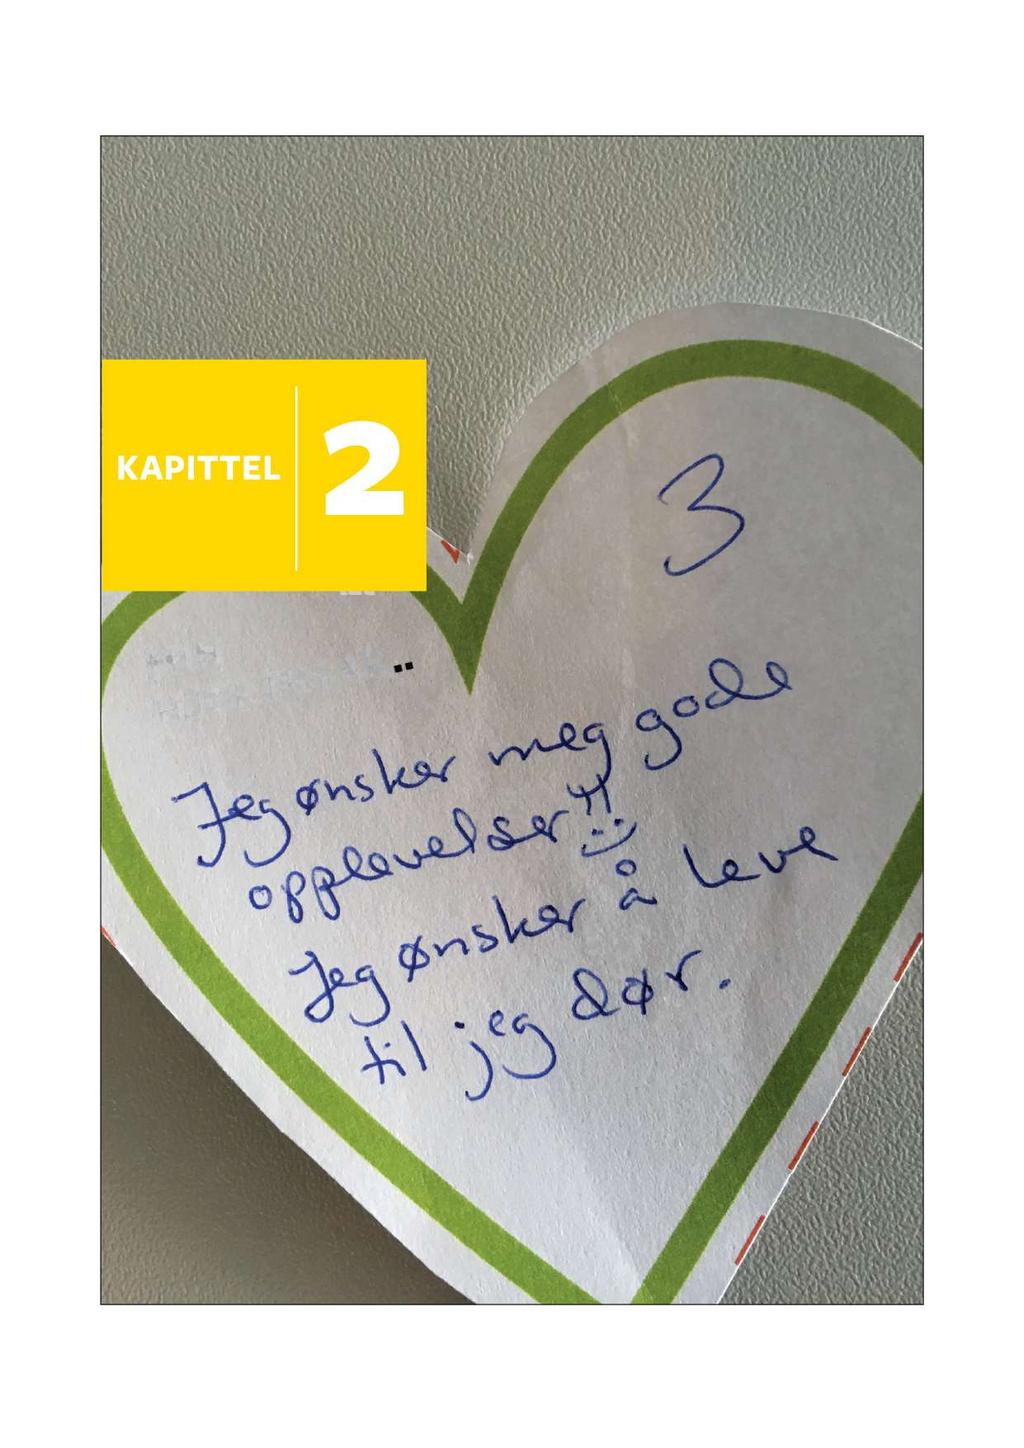 KAPITTEL 2
3
Jeg ønsker meg gode
opplevelser!!
Jeg ønsker å leve
til jeg dør.